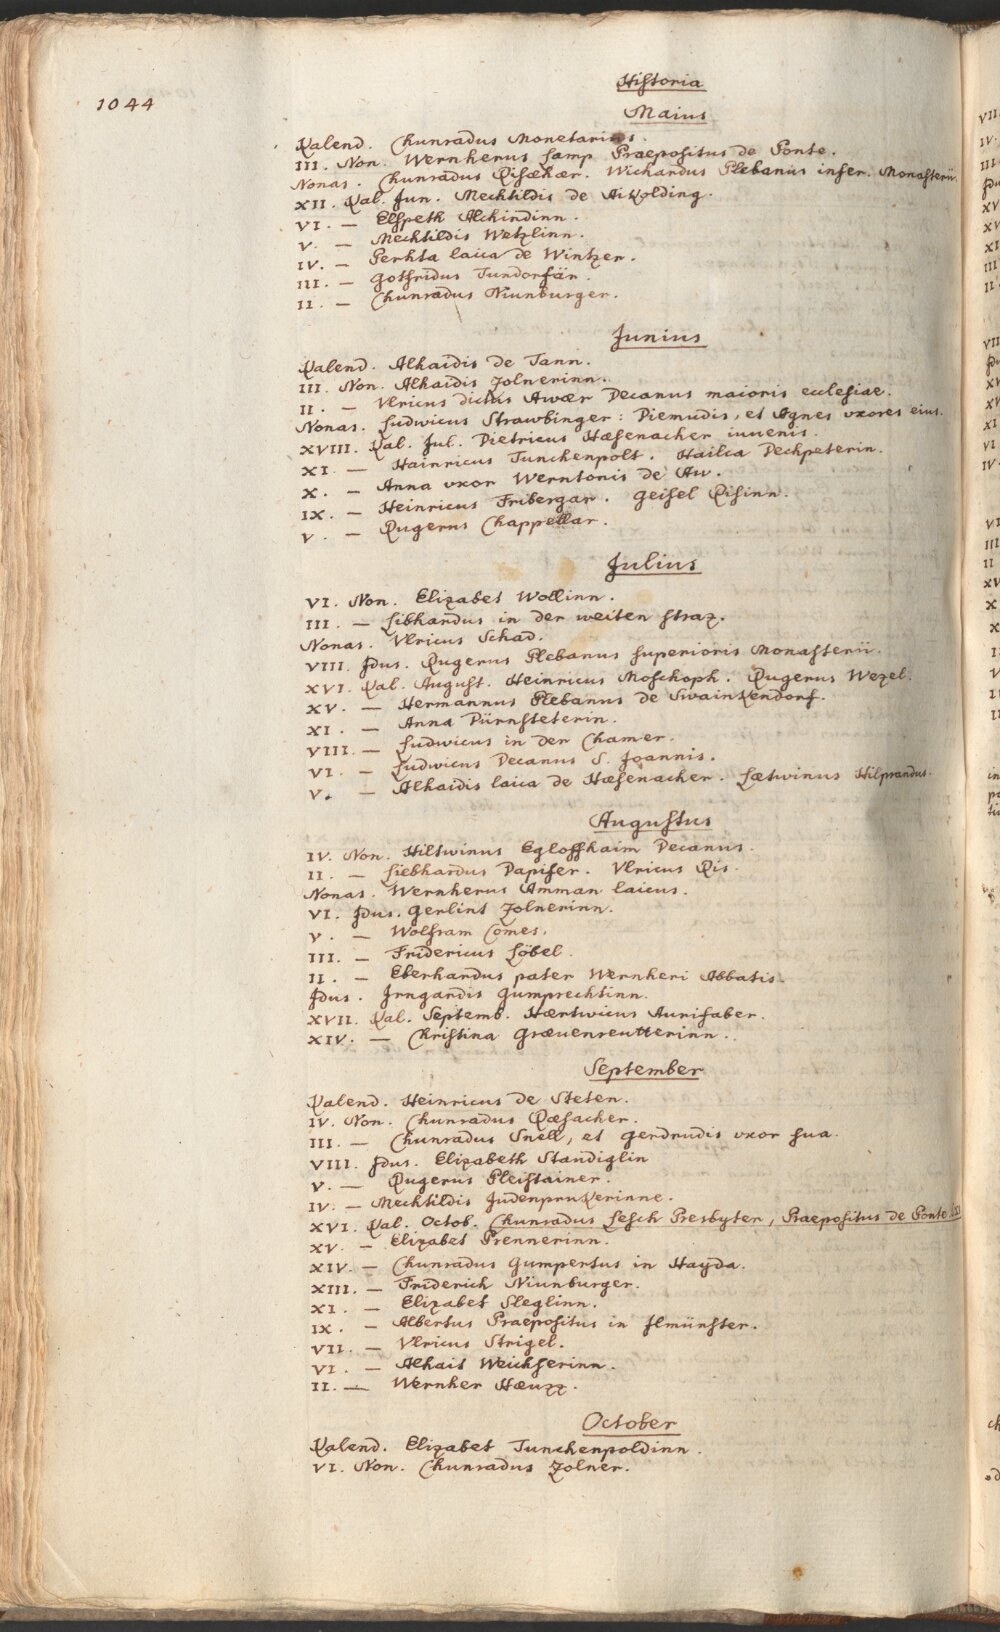 1044
Historia
Maius
Kalend. Chunradus Monetarius.
III. Non. Wernherus Lamp Praepositus de Ponte.
Nonas. Chunradus Wichardus Plebanus infer. Monasterii.
XII. Kal. Jun. Mechtildis de Aikolding.
VI. — Elspeth Alchindinn.
V. — Mechtildis Wetzlinn.
IV. — Perhta laica de Wintzer.
III. — Gotfridus Tundorfär.
II. — Chunradus Niunburger.
Junius
Kalend. Alhaidis de Tann.
III. Non. Alhaidis Zolnerinn.
II. — Ulricus dictus Awær Decanus maioris ecclesiae.
Nonas. Ludwicus Strawbinger: Diemudis, et Agnes uxores eius.
XVIII. Kal. Jul. Dietricus Hæsenacher iuvenis.
XI. — Hainricus Tunchenpolt. Hailca Dechpeterin.
X. — Anna uxor Werntonis de Aw.
IX. — Heinricus Fribergar. Geisel Risinn.
V. — Rugerus Chappellar.
Julius
VI. Non. Elizabet Wollinn.
III. — Libhardus in der weiten straz.
Nonas. Ulricus Schad.
VIII. Idus. Rugerus Plebanus superioris Monasterii.
XVI. Kal. August. Heinricus Moschoph. Rugerus Wezel.
XV. — Hermannus Plebanus de Swainkendorf.
XI. — Anna Dürnsteterin.
VIII. — Ludwicus in der Chamer.
VI. — Ludwicus Decanus S. Joannis.
V. — Alhaidis laica de Hæsenacher. Lætwinus Hilprandus.
Augustus
IV. Non. Hiltwinus Egloffhaim Decanus.
II. — Liebhardus Dapifer. Ulricus Ris.
Nonas. Wernherus Amman laicus.
VI. Idus. Gerlint Zolnerinn.
V. — Wolfram Comes.
III. — Fridericus Löbel.
II. — Eberhardus pater Wernheri Abbatis.
Idus. Irngardis Gumprechtinn.
XVII. Kal. Septemb. Hærtwicus Aurifaber.
XIV. — Christina Grævenreutterinn.
September
Kalend. Heinricus de Steten.
IV. Non. Chunradus Ræsacher.
III. — Chunradus Snell, et Gerdrudis uxor sua.
VIII. Idus. Elizabeth Standiglin
V. — Rugerus Pleistainer.
IV. — Mechtildis Judenprukerinne.
XVI. Kal. Octob. Chunradus Lesch Presbyter, Praepositus de Ponte
XV. — Elizabet Prennerinn.
XIV. — Chunradus Gumpertus in Hayda.
XIII. — Friderich Niunburger.
XI. — Elizabet Sleglinn.
IX. — Albertus Praepositus in Ilmünster.
VII. — Ulricus Strigel.
VI. — Alhait Weichserinn.
II. — Wernher Hæuzz.
October
Kalend. Elizabet Tunchenpoldinn.
VI. Non. Chunradus Zolner.